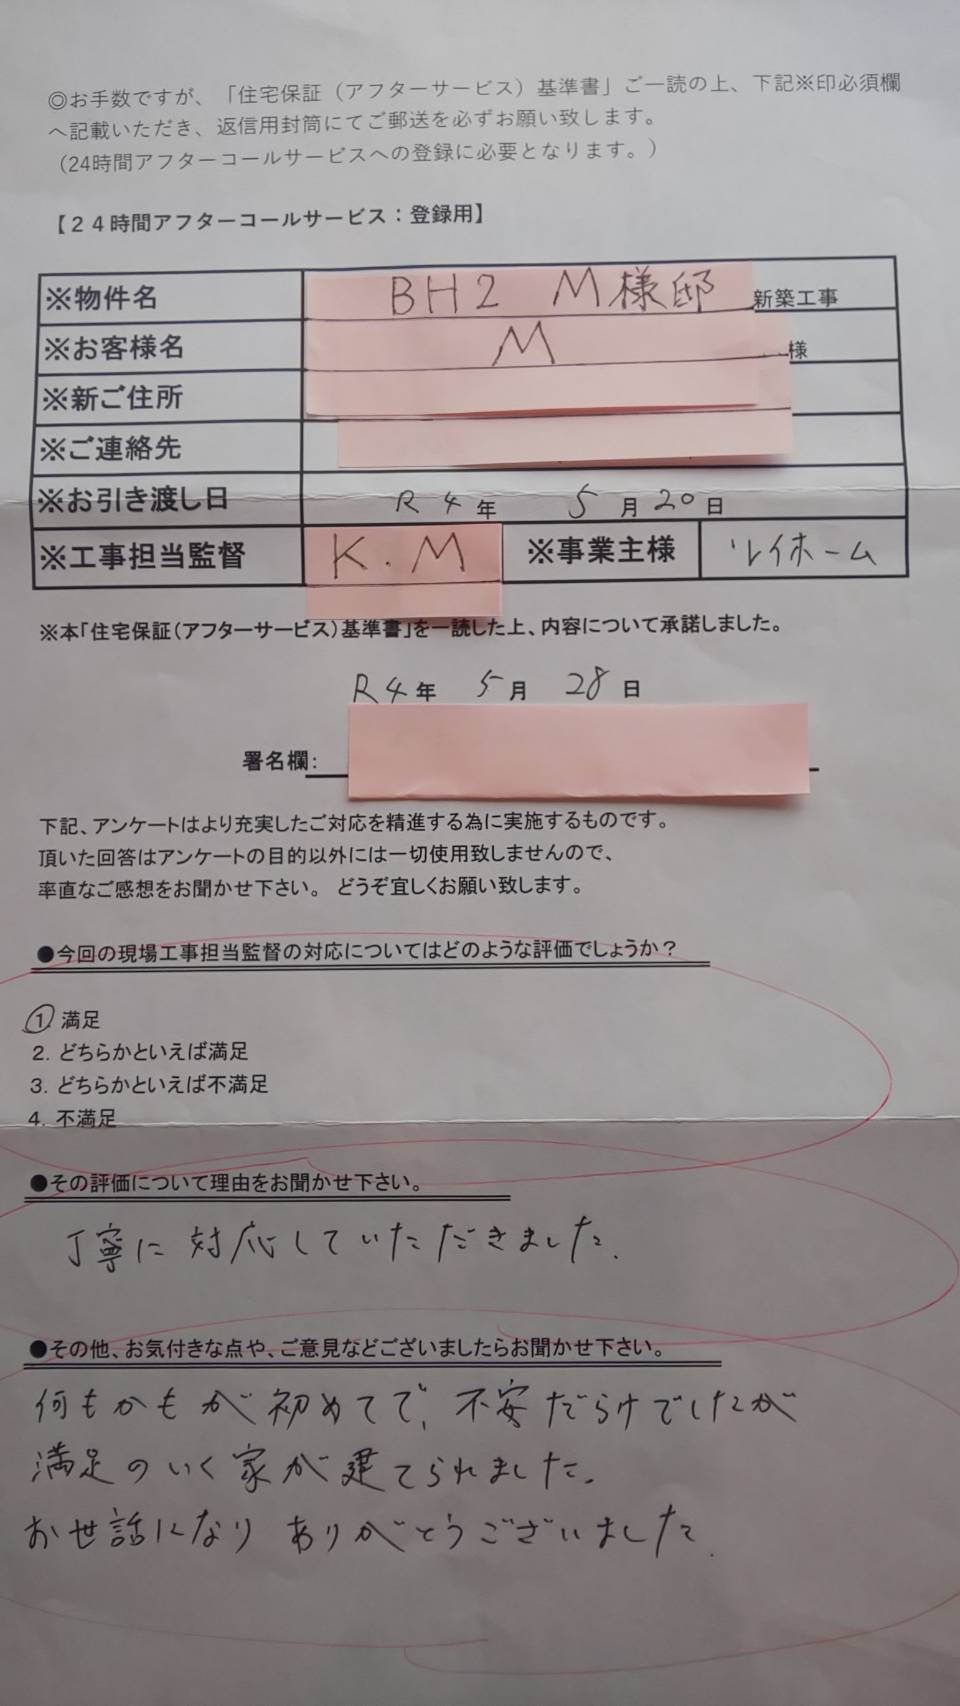 ◎お手数ですが、「住宅保証（アフターサービス）基準書」ご一読の上、下記※印必須欄
へ記載いただき、返信用封筒にてご郵送を必ずお願い致します。
（24時間アフターコールサービスへの登録に必要となります。）
【２４時間アフターコールサービス：登録用】
※物件名 BH2 M様邸 新築工事
※お客様名 M 様
※新ご住所
※ご連絡先
※お引き渡し日 R4年 5月20日
※工事担当監督 K.M ※事業主様 ルイホーム
※本「住宅保証（アフターサービス）基準書」を一読した上、内容について承諾しました。
R4年 5月 28日
署名欄：
下記、アンケートはより充実したご対応を精進する為に実施するものです。
頂いた回答はアンケートの目的以外には一切使用致しませんので、
率直なご感想をお聞かせ下さい。 どうぞ宜しくお願い致します。
●今回の現場工事担当監督の対応についてはどのような評価でしょうか？
1. 満足
2. どちらかといえば満足
3. どちらかといえば不満足
4. 不満足
●その評価について理由をお聞かせ下さい。
丁寧に対応していただきました.
●その他、お気付きな点や、ご意見などございましたらお聞かせ下さい。
何もかもが初めてで、不安だらけでしたが
満足のいく家が建てられました。
お世話になりありがとうございました.